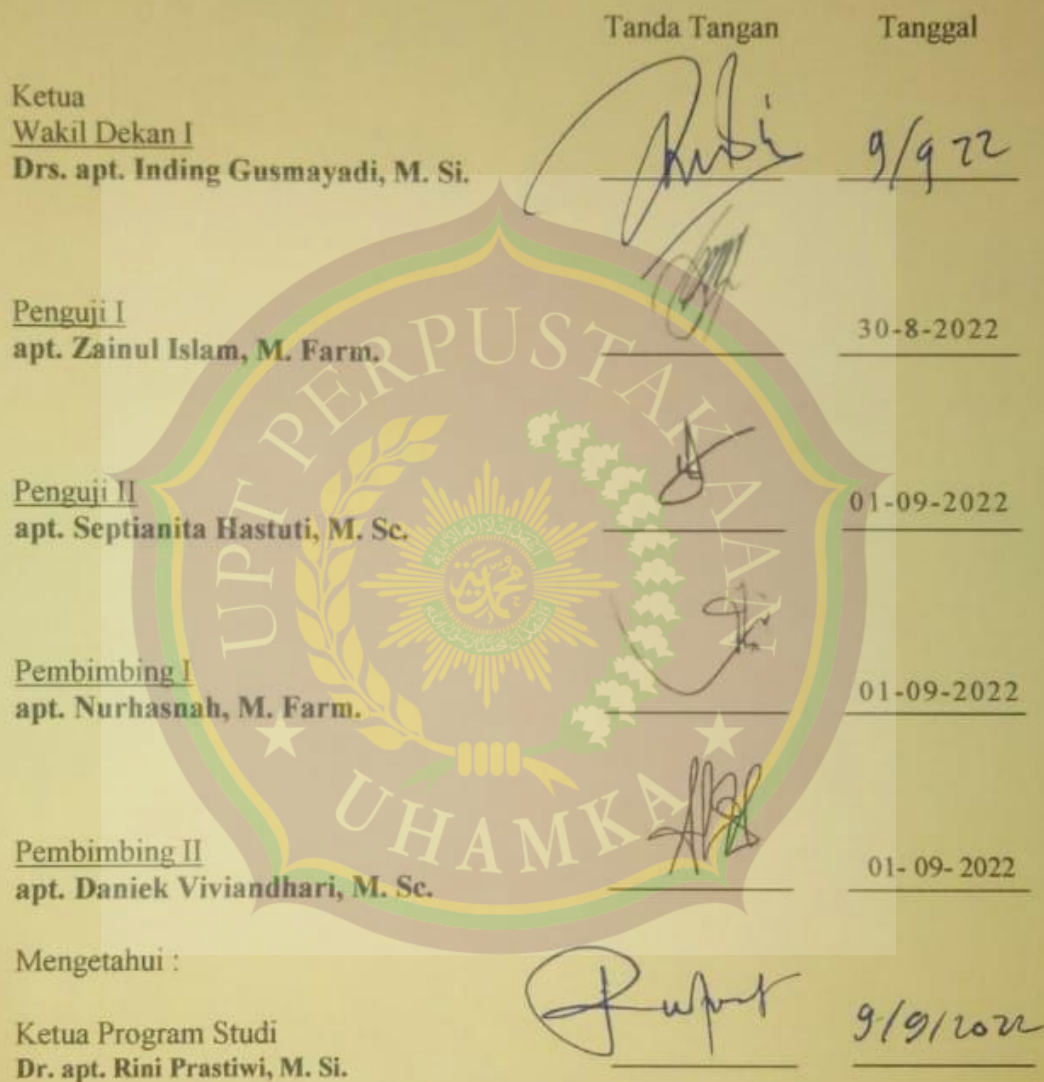 Tanda Tangan Tanggal
Ketua
Wakil Dekan I
Drs. apt. Inding Gusmayadi, M. Si. 9/9 22
Penguji I
apt. Zainul Islam, M. Farm. 30-8-2022
Penguji II
apt. Septianita Hastuti, M. Sc. 01-09-2022
Pembimbing I
apt. Nurhasnah, M. Farm. 01-09-2022
Pembimbing II
apt. Daniek Viviandhari, M. Sc. 01- 09- 2022
Mengetahui :
Ketua Program Studi
Dr. apt. Rini Prastiwi, M. Si. 9/9/2022
UPT PERPUSTAKAAN
UHAMKA